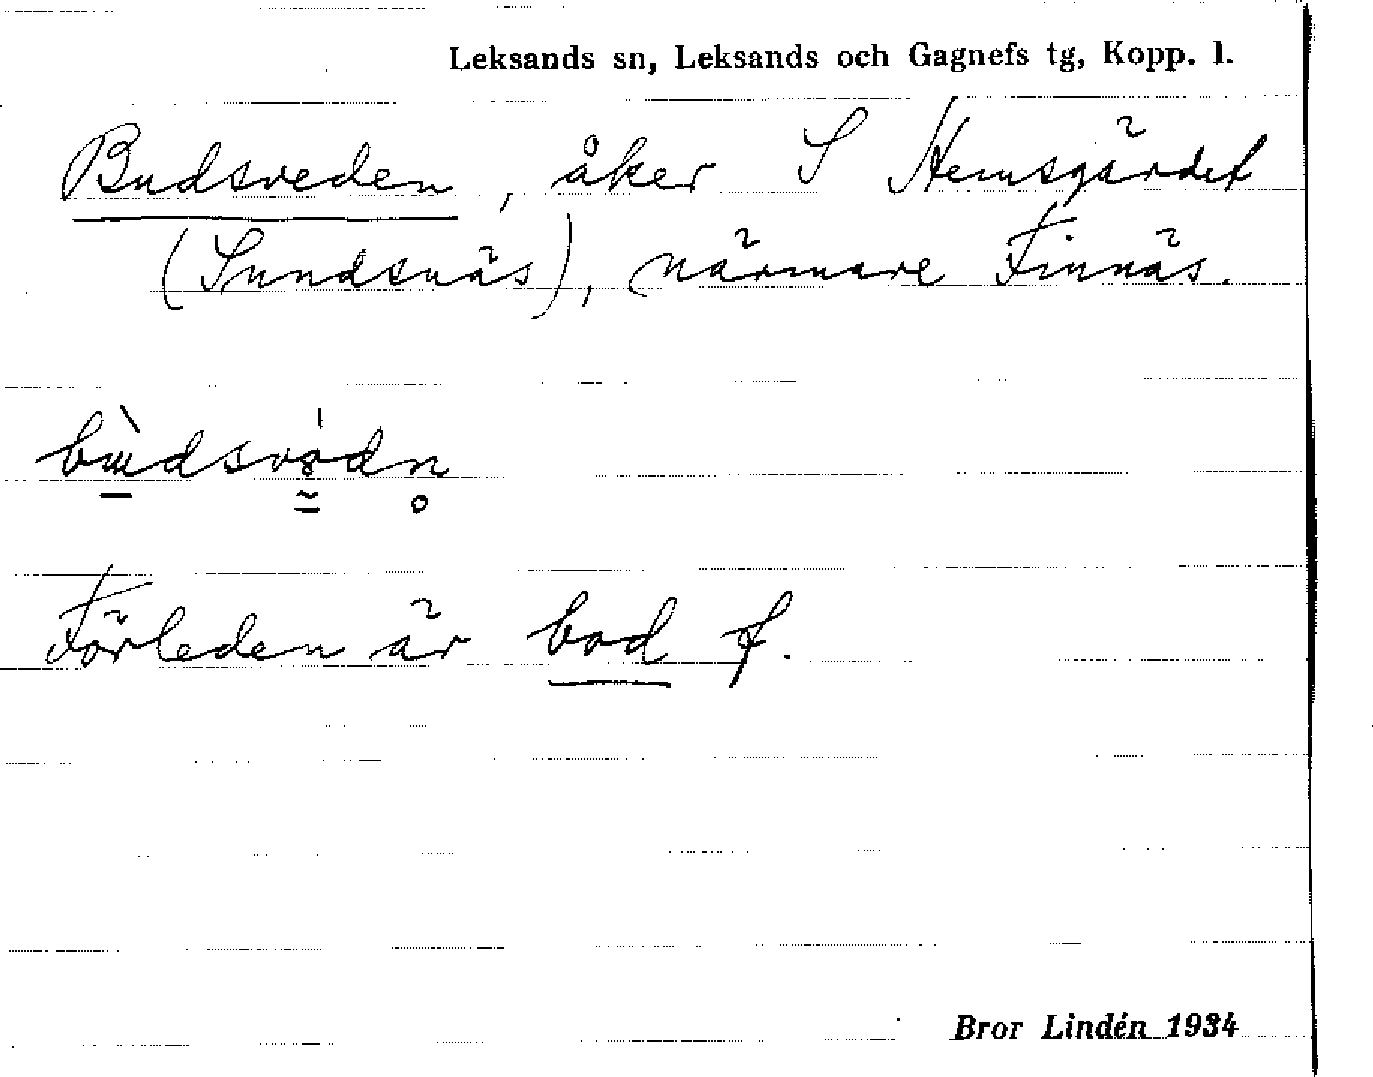 Leksands sn, Leksands och Gagnefs tg, Kopp. l.
Budsveden, åker S Hemsgärdet
(Sundsnäs), närmare Finnäs.
Förleden är bod f.
Bror Lindén 1934